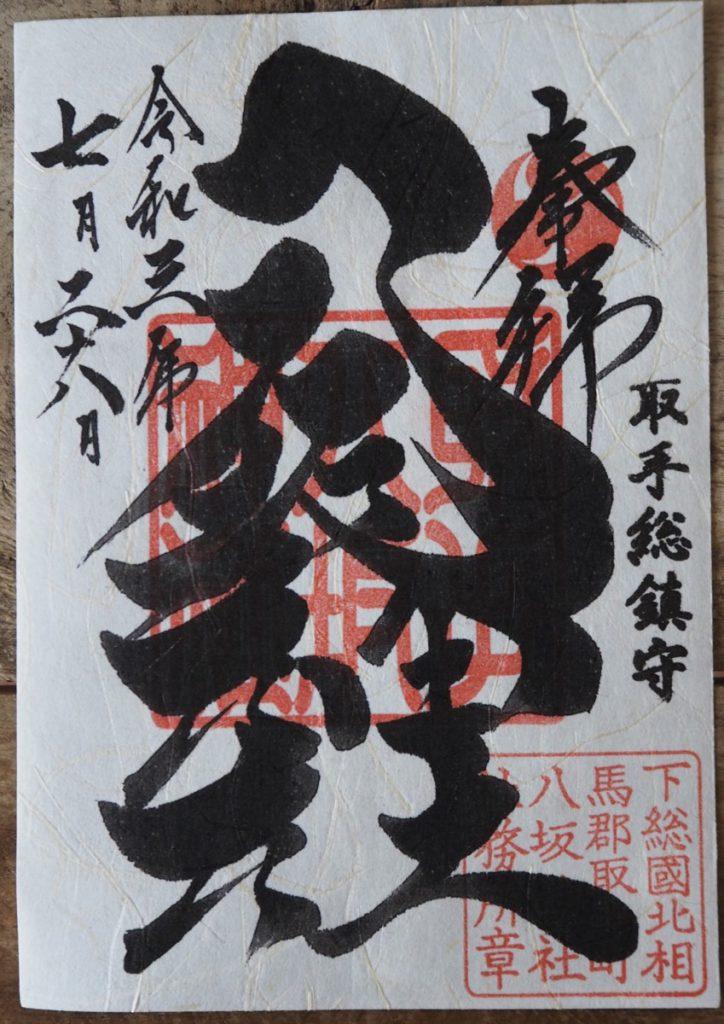 奉拝
取手総鎮守
八坂神社
令和三年
七月二十八日
下総國北相
馬郡取手町
八坂神社
社務所章